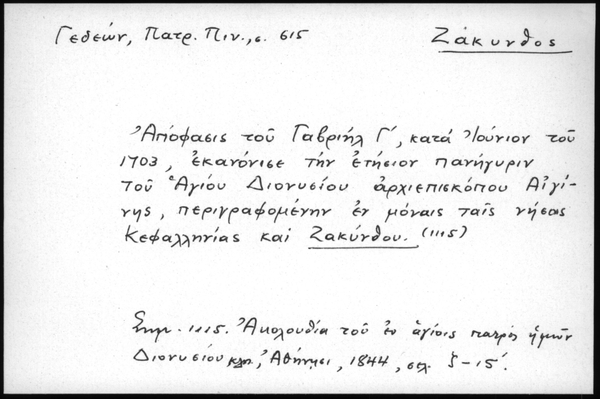 Γεδεών, Πατρ. Πιν., σ. 615 Ζάκυνθος
Ἀπόφασις τοῦ Γαβριήλ Γ΄, κατά Ἰούνιον τοῦ
1703, ἐκανόνισε τήν ἐτήσιον πανήγυριν
τοῦ Ἁγίου Διονυσίου ἀρχιεπισκόπου Αἰγί-
νης, περιγραφομένην ἐν μόναις ταῖς νήσοις
Κεφαλληνίας καί Ζακύνθου. (1115)
Σημ. 1115. Ἀκολουθία τοῦ ἐν ἁγίοις πατρός ἡμῶν
Διονυσίου κλπ., Ἀθήνησι, 1844, σελ. ζ-15΄.